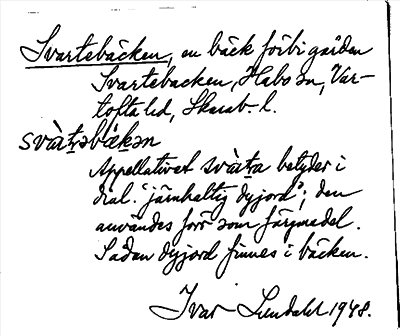 Svartebäcken, en bäck förbi gården
Svartebacken, Habo sn, Var-
tofta hd, Skarab. l.
svàṭəbǻkən
Appellativet svàṭa betyder i
dial. "järnhaltig dyjord"; den
användes förr som färgmedel.
Sådan dyjord finnes i bäcken.
Ivar Lundahl 1948.